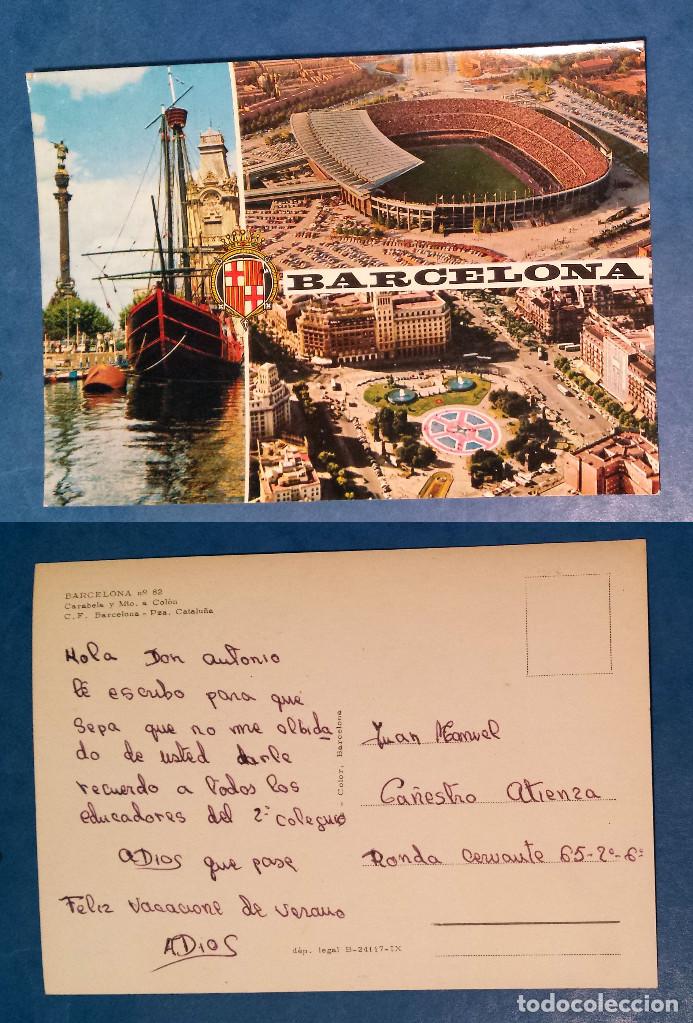 BARCELONA
BARCELONA nº 82
Carabela y Mto. a Colón
C. F. Barcelona - Pza. Cataluña
Hola Don antonio
le escribo para que
sepa que no me olbida
do de usted darle
recuerdo a todos los
educadores del 2º Colegio
ADIOS que pase
Feliz vacacione de verano
ADIOS
- Color, Barcelona
Juan Manuel
Cañestro Atienza
Ronda Cervante 65-2º-6ª
dép. legal B-24117-IX
todocoleccion